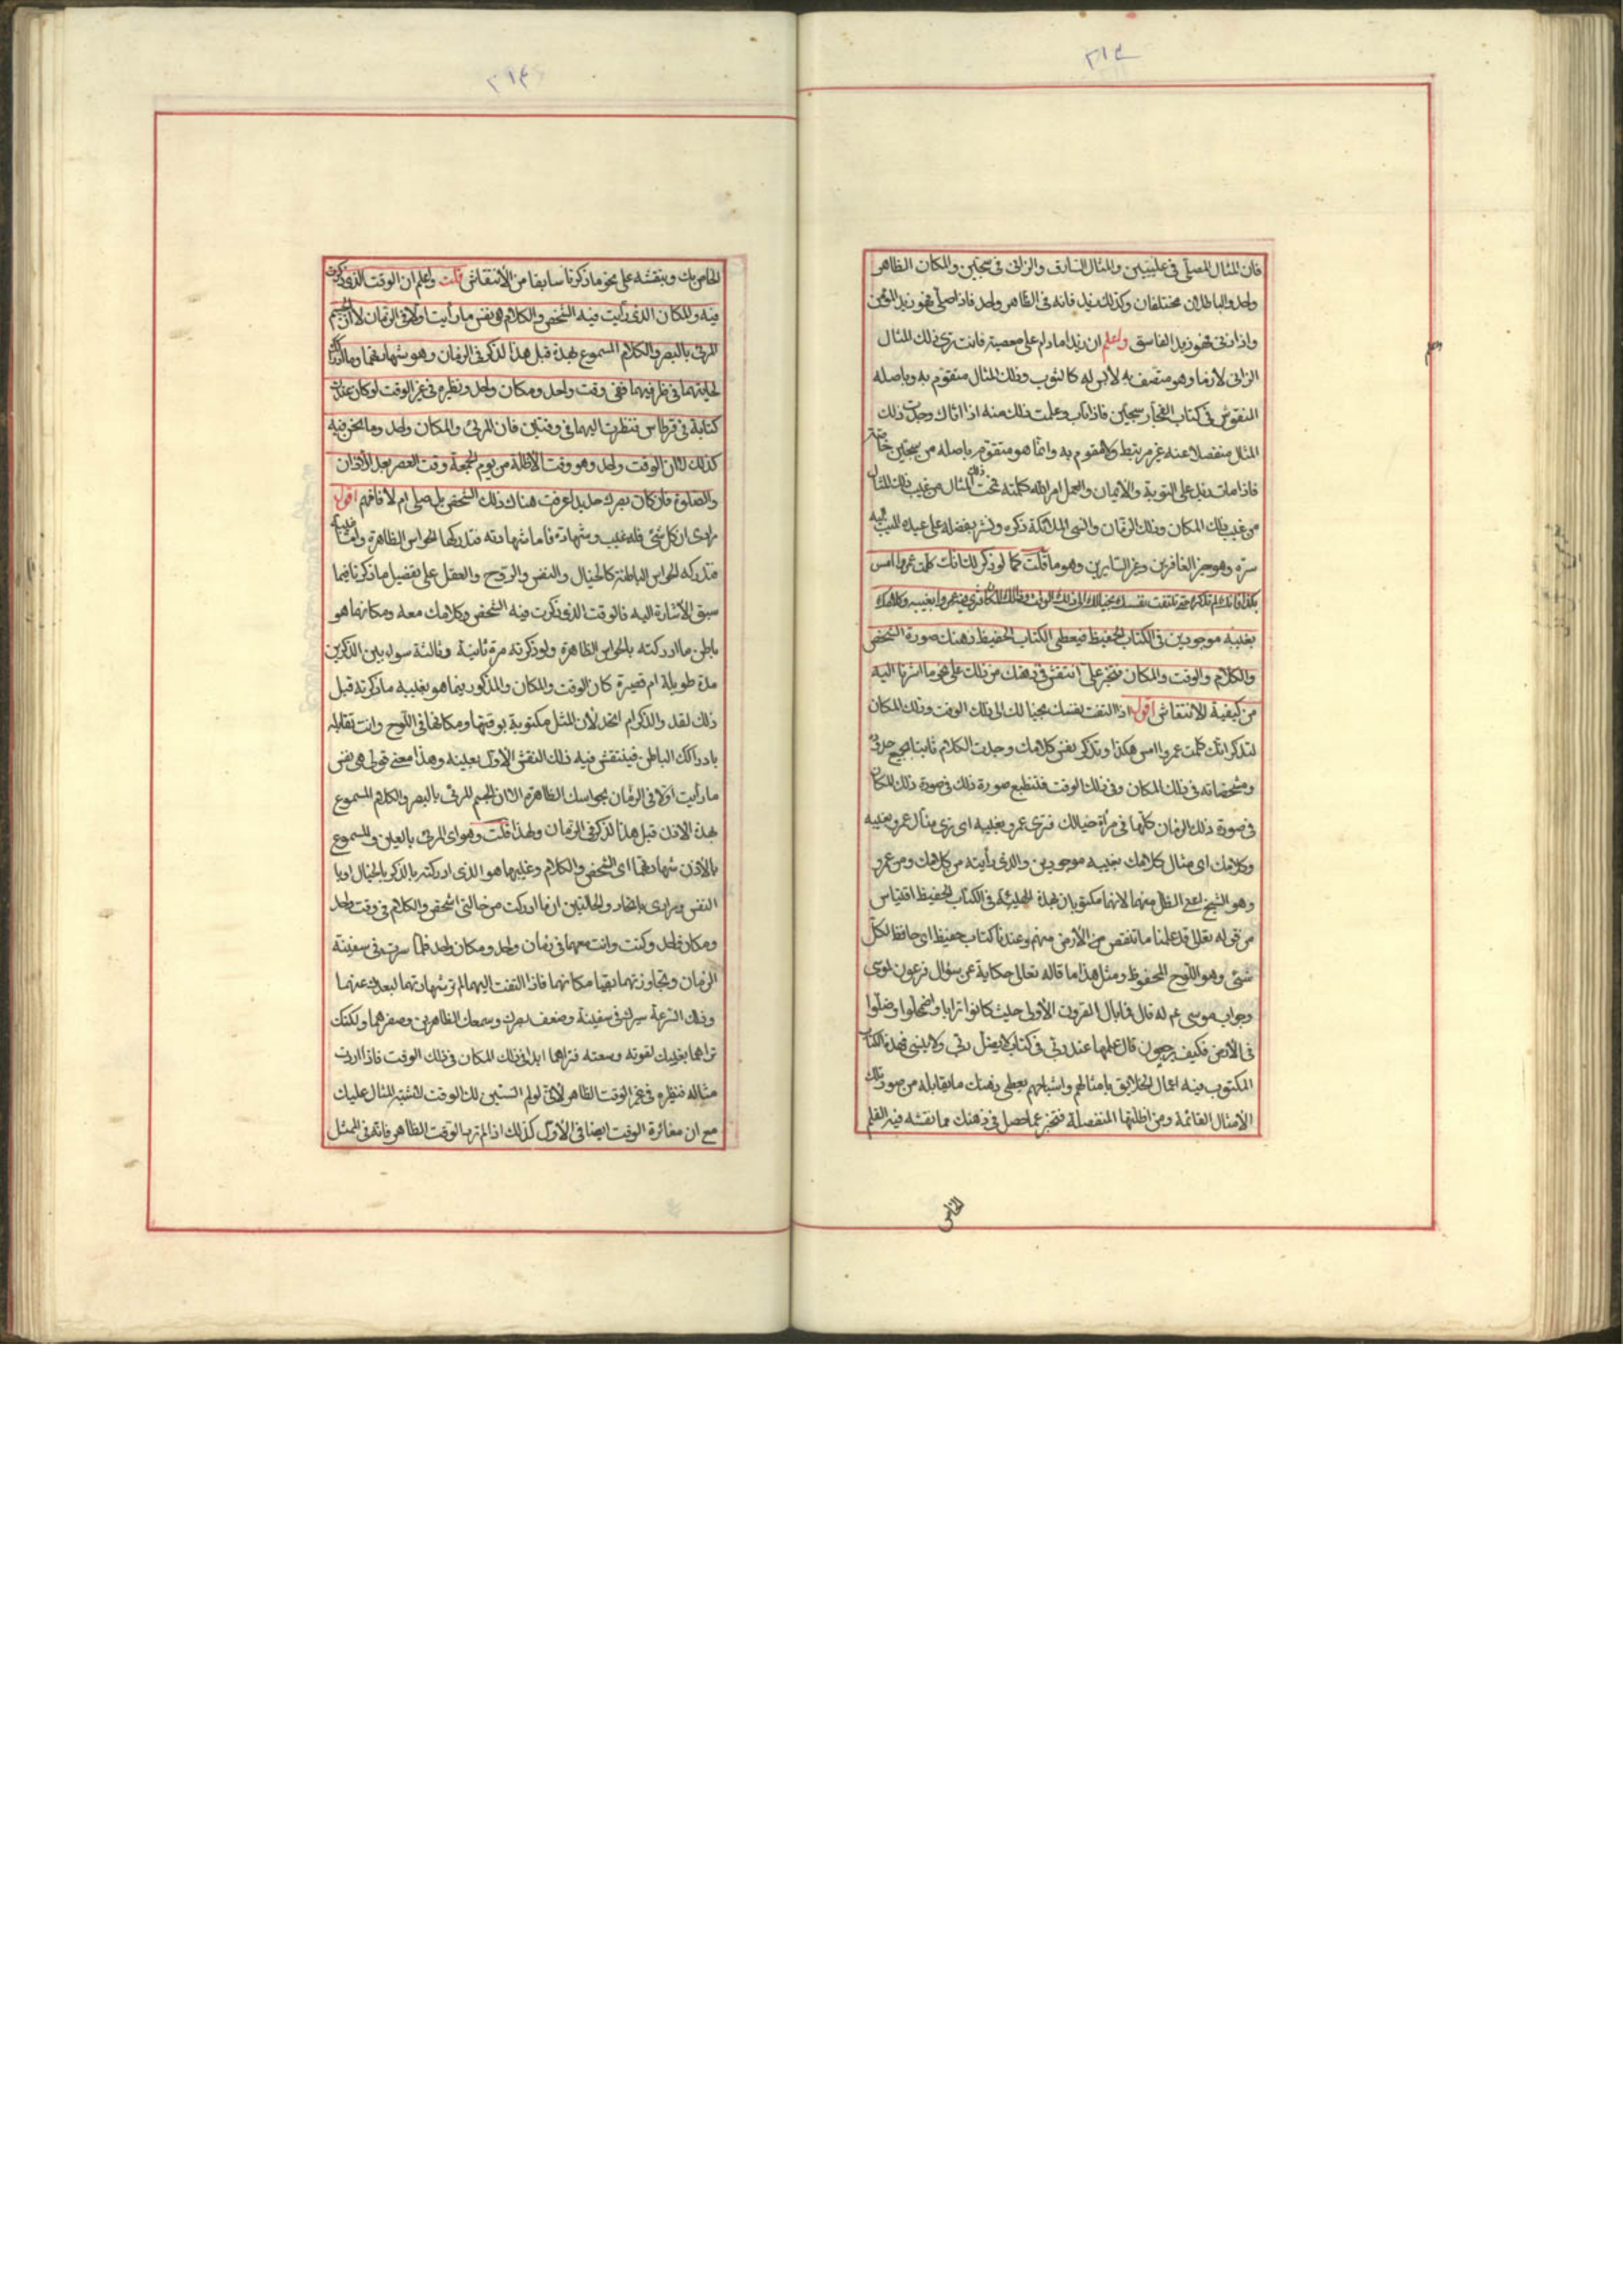 ٢١٣
فان المثال المصلي في عليين والمثال السارق والزاني في سجين والمكان الظاهر
واحد والباطلان مختلفان وكذلك زيد فانه في الظاهر واحد فاذا صلى فهو زيد المؤمن
واذا زنى فهو زيد الفاسق واعلم ان زيدا ما دام على معصيته فانت ترى ذلك المثال
الزاني لازما وهو متصف به لابس له كالثوب وذلك المثال متقوم به وباصله
المنقوش في كتاب الفجار سجين فاذا تاب وعلمت ذلك منه اذا اتاك وجدت ذلك
المثال منفصلا عنه غير مرتبط ولا متقوم به وانما هو متقوم باصله من سجين خاصة
فاذا مات زيد على التوبة والايمان والعمل امر الله كلمته تحت ذلك المثال من غيب ذلك المثال
من غيب ذلك المكان وذلك الزمان وانسى الملائكة ذكره ونشر بفضله على عبده المنيب اليه
ستره وهو خير الغافرين وخير الساترين وهو ما قلت كما لو ذكر لك انك كلمت عمروا امس
بكذا فانك لم تذكره حتى تلتفت نفسك بخيالك الى ذلك الوقت وذلك المكان فترى فيه عمروا بغيبه وكلامك
بغيبه موجودين في الكتاب الحفيظ فيعطى الكتاب الحفيظ ذهنك صورة الشخص
والكلام والوقت والمكان فتخبر على ما انتقش في ذهنك من ذلك على نحو ما اشرنا اليه
من كيفية الانتقاش اقول اذا التفت نفسك بخيالك الى ذلك الوقت وذلك المكان
لتذكر انك كلمت عمروا امس هكذا وتذكر نفس كلامك وجدت الكلام ثابتا بجميع حروفه
ومشخصاته في ذلك المكان وفي ذلك الوقت فتنطبع صورة ذلك في صورة ذلك المكان
في صورة ذلك الزمان كلها في مرآة خيالك فترى عمرو بغيبه اي ترى مثال عمرو بغيبه
وكلامك اي مثال كلامك بغيبه موجودين والذي رأيته من كلامك ومن عمرو
وهو الشبح اعني الظل منهما لانهما مكتوبان بهذه الهيئة في الكتاب الحفيظ اقتباس
من قوله تعالى قد علمنا ما تنقص من الأرض منهم وعندنا كتاب حفيظ اي حافظ لكل
شئ وهو اللوح المحفوظ ومثل هذا ما قاله تعالى حكاية عن سؤال فرعون لموسى
وجواب موسى عم له قال فما بال القرون الأولى حيث كانوا ترابا واضمحلوا وضلوا
في الأرض فكيف يرجعون قال علمها عند ربي في كتاب لا يضل ربي ولا ينسى فهذا الكتاب
المكتوب فيه اعمال الخلايق بامثالهم واشباحهم يعطى ذهنك ما يقابله من صور تلك
الأمثال القائمة ومن اظلتها المنفصلة فتخبر عما حصل في ذهنك مما نقشه فيه القلم
الخاص
٢١٤
الخاص بك وينقشه على نحو ما ذكرنا سابقا من الانتقاش قلت واعلم ان الوقت الذي ذكرت
فيه والمكان الذي رأيت فيه الشخص والكلام هي نفس ما رأيت اولا في الزمان لا ان الجسم
المرئي بالبصر والكلام المسموع بهذه قبل هذا الذكر في الزمان وهو شهادتهما وما ادركت
لحايتهما في ظرفيهما ففي وقت واحد ومكان واحد ونظيره في غير الوقت لو كان عندك
كتابة في قرطاس فنظرت اليهما في وقتين فان المرئي والمكان واحد وما نحن فيه
كذلك لان الوقت واحد وهو وقت الاظلة من يوم الجمعة وقت العصر بعد الأذان
والصلوة فلو كان بصرك حديدا عرفت هناك ذلك الشخص بل صلى ام لا فافهم اقول
مرادي ان كل شئ فله غيب وشهادة فاما شهادته فتدركها الحواس الظاهرة واما غيبه
فتدركه الحواس الباطنة كالخيال والنفس والروح والعقل على تفصيل ما ذكرنا فيما
سبق الاشارة اليه فالوقت الذي ذكرت فيه الشخص وكلامك معه ومكانهما هو
باطن ما ادركته بالحواس الظاهرة ولو ذكرته مرة ثانية وثالثة سواء بين الذكرين
مدة طويلة ام قصيرة كان الوقت والمكان والمذكور فيهما هو بغيبه ما ذكرته قبل
ذلك لقد والذكر ام اتحد لأن المثل مكتوبة بوقتها ومكانها في اللوح وانت تقابله
بادراكك الباطن فينتقش فيه ذلك النقش الأول بعينه وهذا معنى قولي هي نفس
ما رأيت اولا في الزمان بحواسك الظاهرة الا ان الجسم المرئي بالبصر والكلام المسموع
بهذه الاذن قبل هذا الذكر في الزمان ولهذا قلت وهو اي المرئي بالعين والمسموع
بالأذن شهادتهما اي الشخص والكلام وغيبهما هو الذي ادركته بالذكر بالخيال او با
النفس ومرادي باتحاد والحالتين ان ما ادركت من حالتي الشخص والكلام في وقت واحد
ومكان واحد وكنت وانت معهما في زمان واحد ومكان واحد فلما سرت في سفينة
الزمان وتجاوزتهما بقيا مكانهما فاذا التفت اليهما لم تر شهادتهما لبعدك عنهما
وذلك لسرعة سيرك في سفينة وضعف بصرك وسمعك الظاهرين وصغرهما ولكنك
تراهما بغيبك لقوته وسعته فتراهما ابدا في ذلك المكان في ذلك الوقت فاذا اردت
مثاله فنظيره في غير الوقت الظاهر لأني لو لم استثن لك الوقت لاشتبه المثال عليك
مع ان مغائرة الوقت ايضا في الأول كذلك اذا لم ترد الوقت الظاهر فانه في الممثل